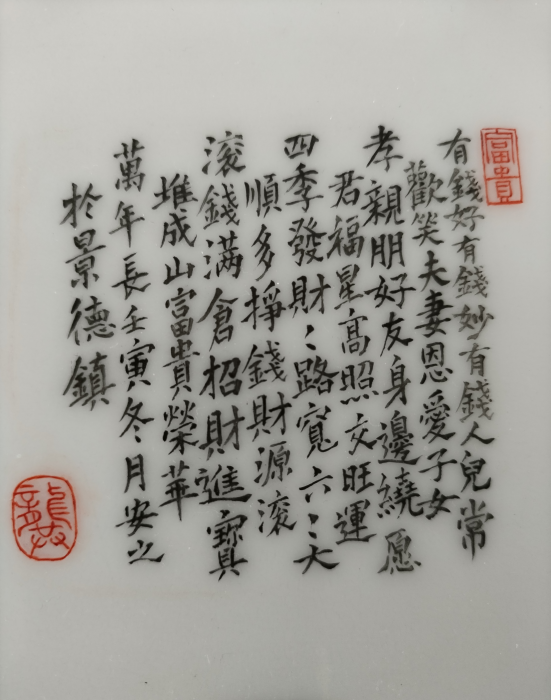 富貴
有錢好有錢妙有錢人兒常
歡笑夫妻恩愛子女
孝親朋好友身邊繞愿
君福星高照交旺運
四季發財〻路寬六〻大
順多掙錢財源滚
滚錢满倉招財進寳
堆成山富貴榮華
萬年長壬寅冬月安之
於景德鎮